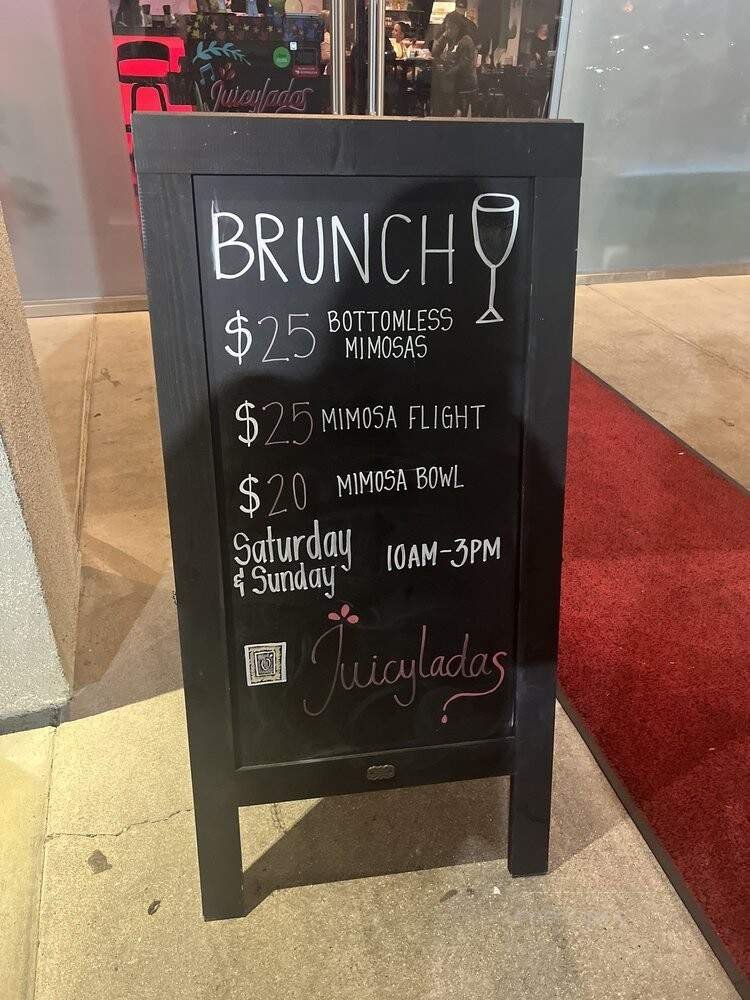 Juicyladas
BRUNCH
$25 BOTTOMLESS
MIMOSAS
$25 MIMOSA FLIGHT
$20 MIMOSA BOWL
Saturday
& Sunday
10AM-3PM
Juicyladas